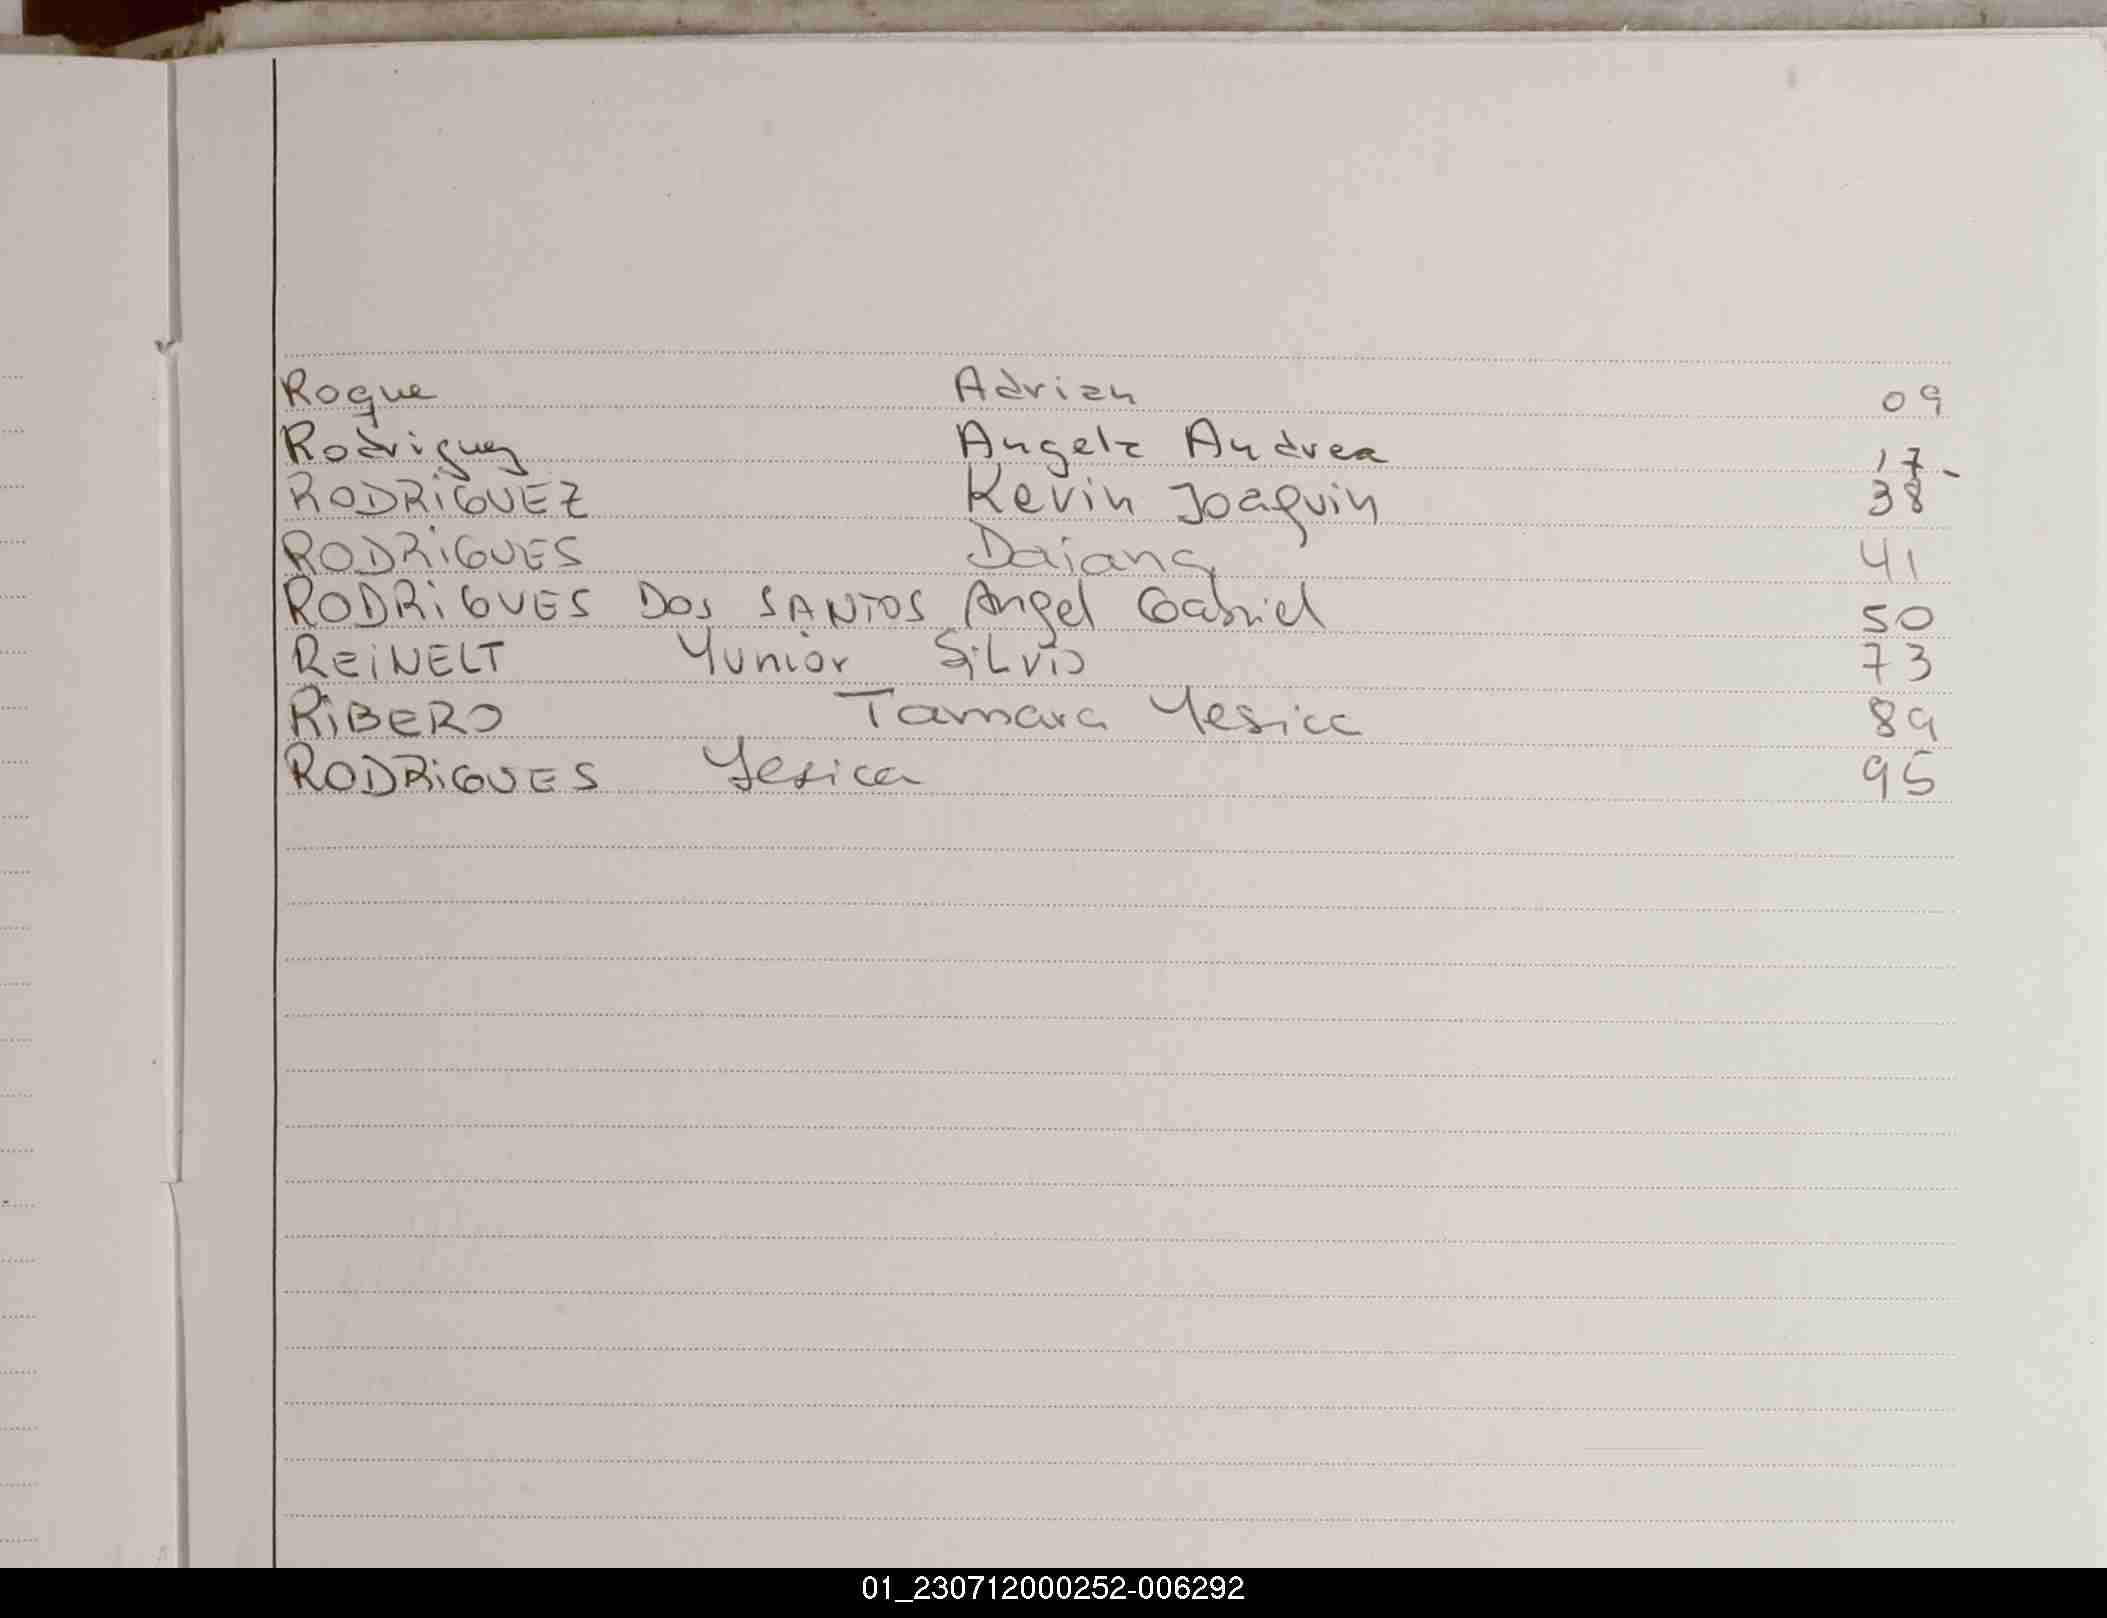 Roque Adrian 09
Rodriguez Angela Andrea 17-
RODRIGUEZ Kevin Joaquin 38
RODRIGUES Daiana 41
RODRIGUES DOS SANTOS Angel Gabriel 50
REINELT Yunior Silvio 73
RIBERO Tamara Yesica 89
RODRIGUES Yesica 95
01_230712000252-006292